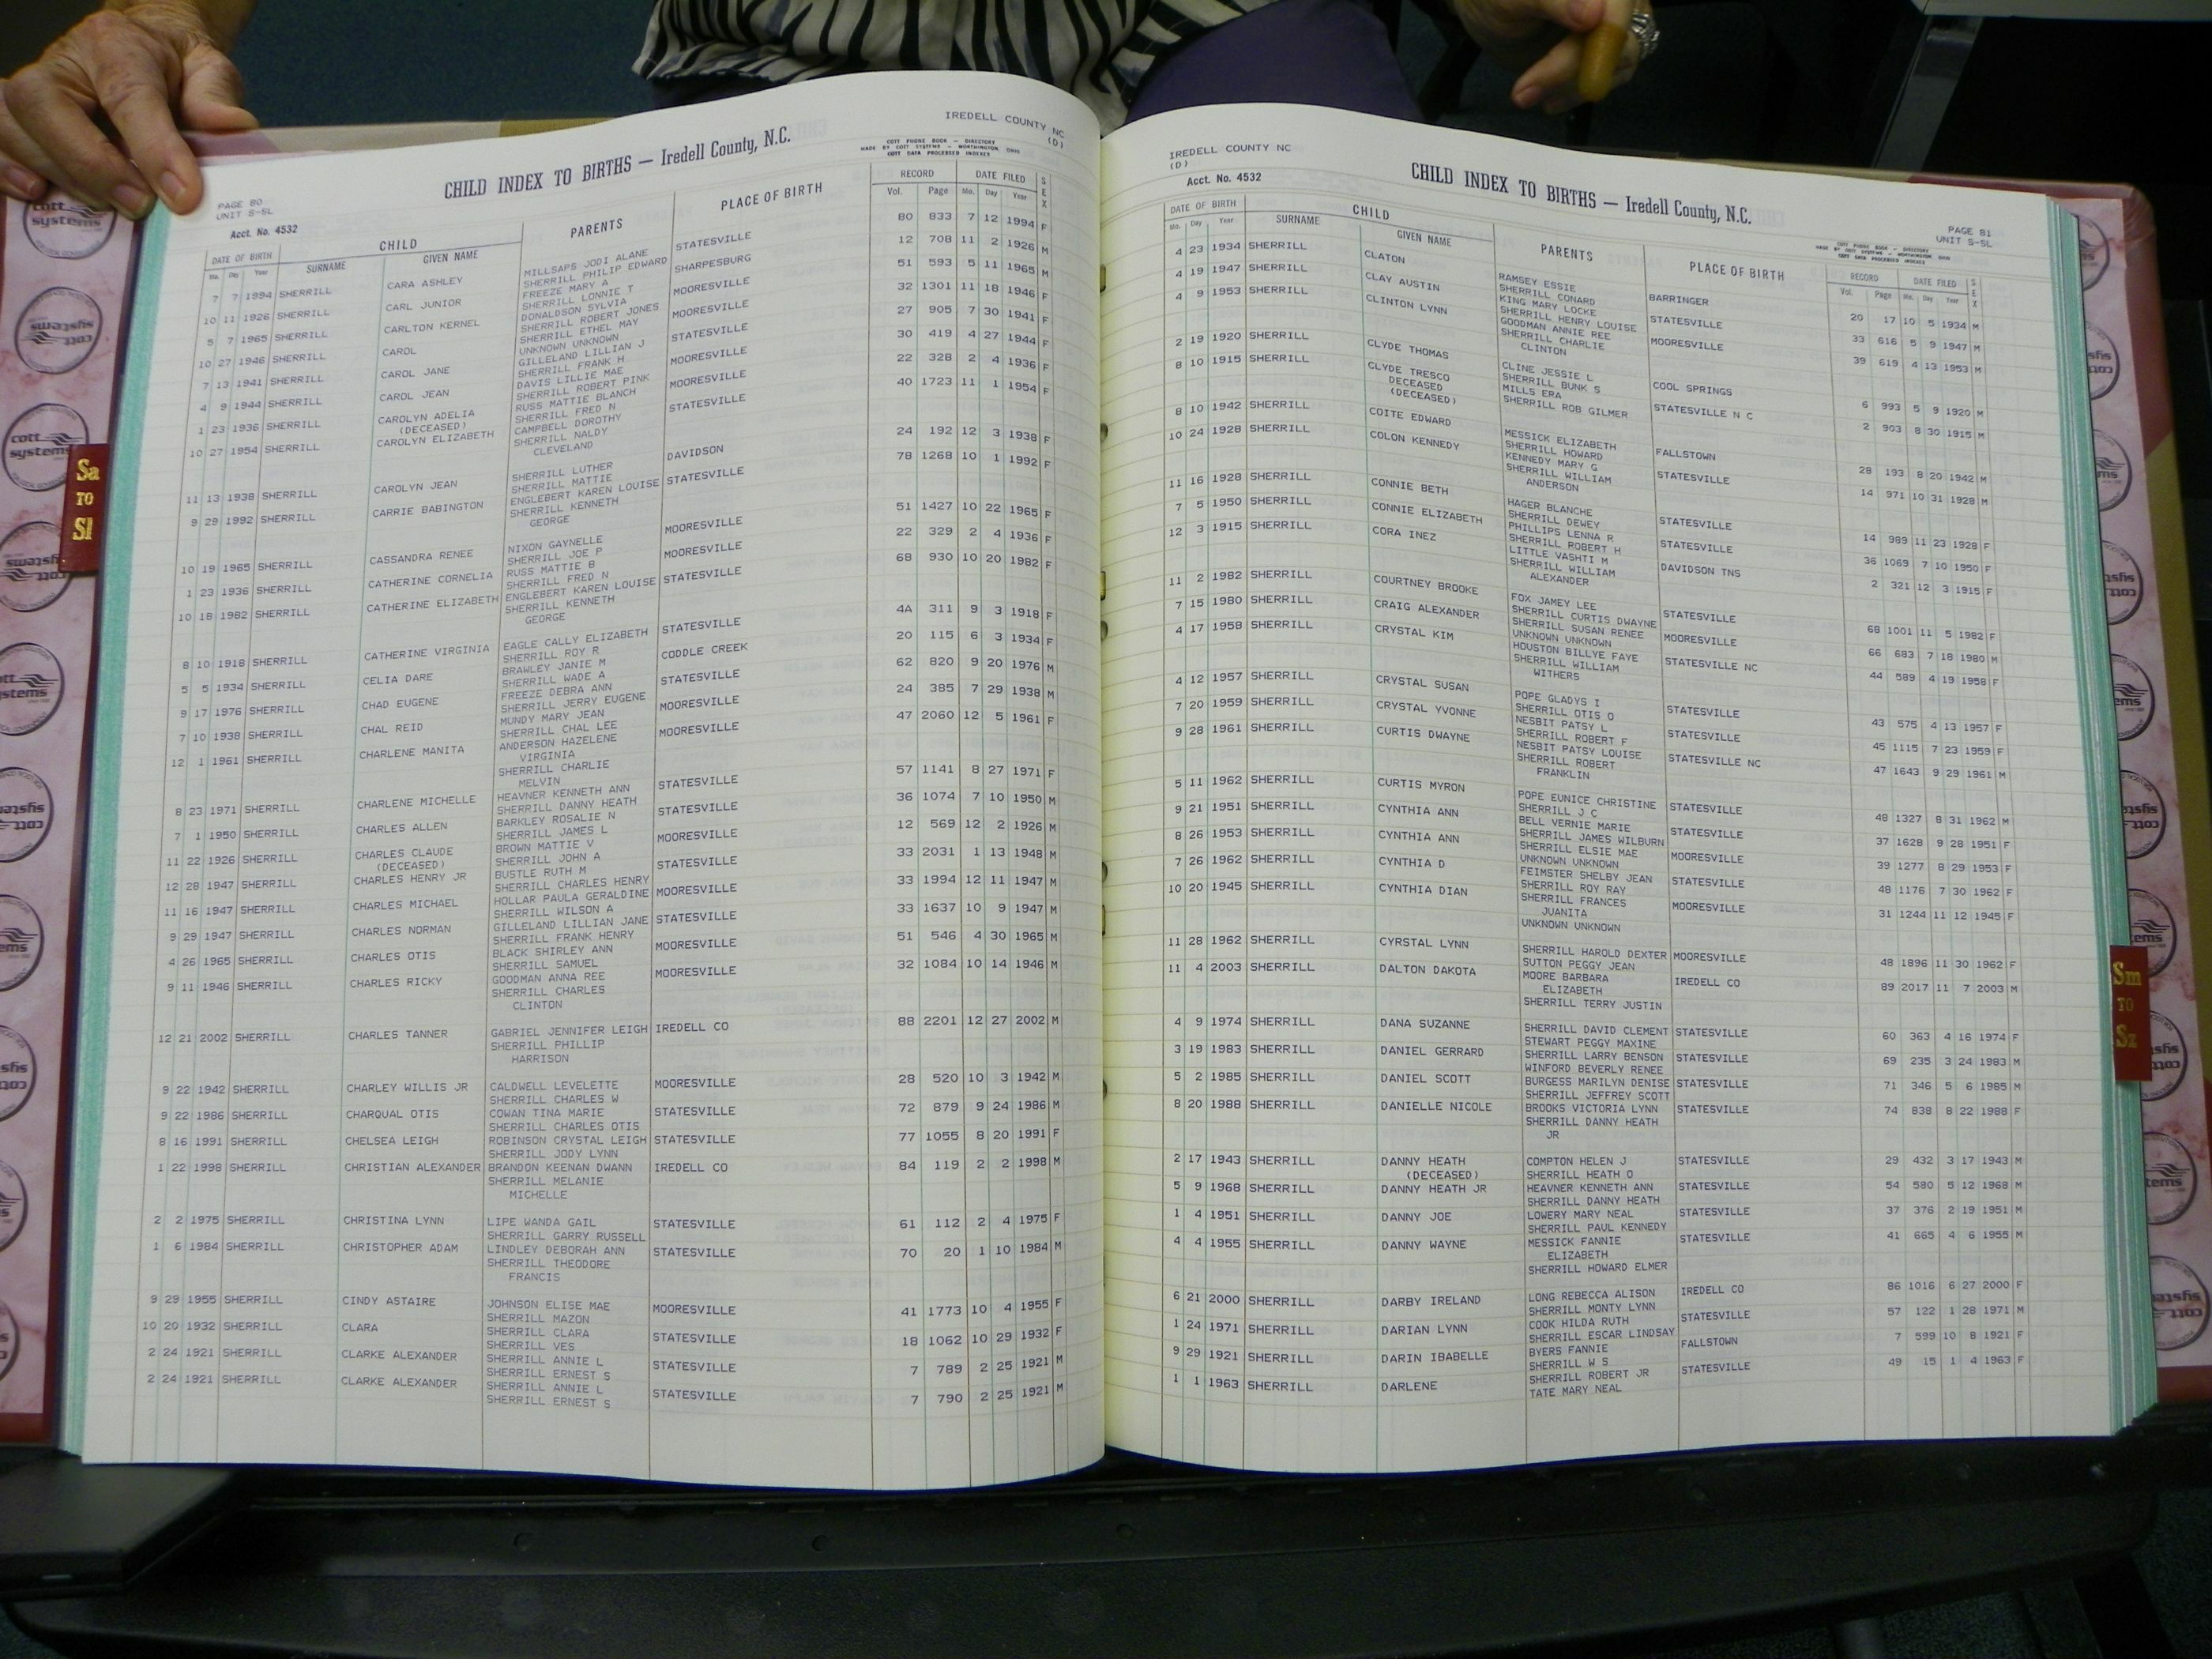 IREDELL COUNTY NC
(D)
CHILD INDEX TO BIRTHS — Iredell County, N.C.
COTT PHONE BOOK — DIRECTORY
MADE BY COTT SYSTEMS — WORTHINGTON, OHIO
COTT DATA PROCESSED INDEXES
PAGE 80
UNIT S-SL
Acct. No. 4532
DATE OF BIRTH CHILD PARENTS PLACE OF BIRTH RECORD DATE FILED SEX
Mo. Day Year SURNAME GIVEN NAME Vol. Page Mo. Day Year
7 7 1994 SHERRILL CARA ASHLEY MILLSAPS JODI ALANE STATESVILLE 80 833 7 12 1994 F
SHERRILL PHILIP EDWARD
10 11 1926 SHERRILL CARL JUNIOR FREEZE MARY A SHARPESBURG 12 708 11 2 1926 M
SHERRILL LONNIE T
5 7 1965 SHERRILL CARLTON KERNEL DONALDSON SYLVIA MOORESVILLE 51 593 5 11 1965 M
SHERRILL ROBERT JONES
10 27 1946 SHERRILL CAROL SHERRILL ETHEL MAY MOORESVILLE 32 1301 11 18 1946 F
UNKNOWN UNKNOWN
7 13 1941 SHERRILL CAROL JANE GILLELAND LILLIAN J STATESVILLE 27 905 7 30 1941 F
SHERRILL FRANK H
4 9 1944 SHERRILL CAROL JEAN DAVIS LILLIE MAE MOORESVILLE 30 419 4 27 1944 F
SHERRILL ROBERT PINK
1 23 1936 SHERRILL CAROLYN ADELIA RUSS MATTIE BLANCH MOORESVILLE 22 328 2 4 1936 F
(DECEASED) SHERRILL FRED N
10 27 1954 SHERRILL CAROLYN ELIZABETH CAMPBELL DOROTHY STATESVILLE 40 1723 11 1 1954 F
SHERRILL NALDY
CLEVELAND
11 13 1938 SHERRILL CAROLYN JEAN SHERRILL LUTHER DAVIDSON 24 192 12 3 1938 F
SHERRILL MATTIE
9 29 1992 SHERRILL CARRIE BABINGTON ENGLEBERT KAREN LOUISE STATESVILLE 78 1268 10 1 1992 F
SHERRILL KENNETH
GEORGE
10 19 1965 SHERRILL CASSANDRA RENEE NIXON GAYNELLE MOORESVILLE 51 1427 10 22 1965 F
SHERRILL JOE P
1 23 1936 SHERRILL CATHERINE CORNELIA RUSS MATTIE B MOORESVILLE 22 329 2 4 1936 F
SHERRILL FRED N
10 18 1982 SHERRILL CATHERINE ELIZABETH ENGLEBERT KAREN LOUISE STATESVILLE 68 930 10 20 1982 F
SHERRILL KENNETH
GEORGE
8 10 1918 SHERRILL CATHERINE VIRGINIA EAGLE CALLY ELIZABETH STATESVILLE 4A 311 9 3 1918 F
SHERRILL ROY R
5 5 1934 SHERRILL CELIA DARE BRAWLEY JANIE M CODDLE CREEK 20 115 6 3 1934 F
SHERRILL WADE A
9 17 1976 SHERRILL CHAD EUGENE FREEZE DEBRA ANN STATESVILLE 62 820 9 20 1976 M
SHERRILL JERRY EUGENE
7 10 1938 SHERRILL CHAL REID MUNDY MARY JEAN MOORESVILLE 24 385 7 29 1938 M
SHERRILL CHAL LEE
12 1 1961 SHERRILL CHARLENE MANITA ANDERSON HAZELENE MOORESVILLE 47 2060 12 5 1961 F
VIRGINIA
SHERRILL CHARLIE
MELVIN
8 23 1971 SHERRILL CHARLENE MICHELLE HEAVNER KENNETH ANN STATESVILLE 57 1141 8 27 1971 F
SHERRILL DANNY HEATH
7 1 1950 SHERRILL CHARLES ALLEN BARKLEY ROSALIE N STATESVILLE 36 1074 7 10 1950 M
SHERRILL JAMES L
11 22 1926 SHERRILL CHARLES CLAUDE BROWN MATTIE V MOORESVILLE 12 569 12 2 1926 M
(DECEASED) SHERRILL JOHN A
12 28 1947 SHERRILL CHARLES HENRY JR BUSTLE RUTH M STATESVILLE 33 2031 1 13 1948 M
SHERRILL CHARLES HENRY
11 16 1947 SHERRILL CHARLES MICHAEL HOLLAR PAULA GERALDINE MOORESVILLE 33 1994 12 11 1947 M
SHERRILL WILSON A
9 29 1947 SHERRILL CHARLES NORMAN GILLELAND LILLIAN JANE STATESVILLE 33 1637 10 9 1947 M
SHERRILL FRANK HENRY
4 26 1965 SHERRILL CHARLES OTIS BLACK SHIRLEY ANN MOORESVILLE 51 546 4 30 1965 M
SHERRILL SAMUEL
9 11 1946 SHERRILL CHARLES RICKY GOODMAN ANNA REE MOORESVILLE 32 1084 10 14 1946 M
SHERRILL CHARLES
CLINTON
12 21 2002 SHERRILL CHARLES TANNER GABRIEL JENNIFER LEIGH IREDELL CO 88 2201 12 27 2002 M
SHERRILL PHILLIP
HARRISON
9 22 1942 SHERRILL CHARLEY WILLIS JR CALDWELL LEVELETTE MOORESVILLE 28 520 10 3 1942 M
SHERRILL CHARLES W
9 22 1986 SHERRILL CHARQUAL OTIS COWAN TINA MARIE STATESVILLE 72 879 9 24 1986 M
SHERRILL CHARLES OTIS
8 16 1991 SHERRILL CHELSEA LEIGH ROBINSON CRYSTAL LEIGH STATESVILLE 77 1055 8 20 1991 F
SHERRILL JODY LYNN
1 22 1998 SHERRILL CHRISTIAN ALEXANDER BRANDON KEENAN DWANN IREDELL CO 84 119 2 2 1998 M
SHERRILL MELANIE
MICHELLE
2 2 1975 SHERRILL CHRISTINA LYNN LIPE WANDA GAIL STATESVILLE 61 112 2 4 1975 F
SHERRILL GARRY RUSSELL
1 6 1984 SHERRILL CHRISTOPHER ADAM LINDLEY DEBORAH ANN STATESVILLE 70 20 1 10 1984 M
SHERRILL THEODORE
FRANCIS
9 29 1955 SHERRILL CINDY ASTAIRE JOHNSON ELISE MAE MOORESVILLE 41 1773 10 4 1955 F
SHERRILL MAZON
10 20 1932 SHERRILL CLARA SHERRILL CLARA STATESVILLE 18 1062 10 29 1932 F
SHERRILL VES
2 24 1921 SHERRILL CLARKE ALEXANDER SHERRILL ANNIE L STATESVILLE 7 789 2 25 1921 M
SHERRILL ERNEST S
2 24 1921 SHERRILL CLARKE ALEXANDER SHERRILL ANNIE L STATESVILLE 7 790 2 25 1921 M
SHERRILL ERNEST S
IREDELL COUNTY NC
(D)
Acct. No. 4532
CHILD INDEX TO BIRTHS — Iredell County, N.C.
PAGE 81
UNIT S-SL
COTT PHONE BOOK — DIRECTORY
MADE BY COTT SYSTEMS — WORTHINGTON, OHIO
COTT DATA PROCESSED INDEXES
DATE OF BIRTH CHILD PARENTS PLACE OF BIRTH RECORD DATE FILED SEX
Mo. Day Year SURNAME GIVEN NAME Vol. Page Mo. Day Year
4 23 1934 SHERRILL CLATON RAMSEY ESSIE BARRINGER 20 17 10 5 1934 M
SHERRILL CONARD
4 19 1947 SHERRILL CLAY AUSTIN KING MARY LOCKE STATESVILLE 33 616 5 9 1947 M
SHERRILL HENRY LOUISE
4 9 1953 SHERRILL CLINTON LYNN GOODMAN ANNIE REE MOORESVILLE 39 619 4 13 1953 M
SHERRILL CHARLIE
CLINTON
2 19 1920 SHERRILL CLYDE THOMAS CLINE JESSIE L COOL SPRINGS 6 993 5 9 1920 M
SHERRILL BUNK S
8 10 1915 SHERRILL CLYDE TRESCO MILLS ERA STATESVILLE N C 2 903 8 30 1915 M
DECEASED SHERRILL ROB GILMER
(DECEASED)
8 10 1942 SHERRILL COITE EDWARD MESSICK ELIZABETH FALLSTOWN 28 193 8 20 1942 M
SHERRILL HOWARD
10 24 1928 SHERRILL COLON KENNEDY KENNEDY MARY G STATESVILLE 14 971 10 31 1928 M
SHERRILL WILLIAM
ANDERSON
11 16 1928 SHERRILL CONNIE BETH HAGER BLANCHE STATESVILLE 14 989 11 23 1928 F
SHERRILL DEWEY
7 5 1950 SHERRILL CONNIE ELIZABETH PHILLIPS LENNA R STATESVILLE 36 1069 7 10 1950 F
SHERRILL ROBERT H
12 3 1915 SHERRILL CORA INEZ LITTLE VASHTI M DAVIDSON TNS 2 321 12 3 1915 F
SHERRILL WILLIAM
ALEXANDER
11 2 1982 SHERRILL COURTNEY BROOKE FOX JAMEY LEE STATESVILLE 68 1001 11 5 1982 F
SHERRILL CURTIS DWAYNE
7 15 1980 SHERRILL CRAIG ALEXANDER SHERRILL SUSAN RENEE MOORESVILLE 66 683 7 18 1980 M
UNKNOWN UNKNOWN
4 17 1958 SHERRILL CRYSTAL KIM HOUSTON BILLYE FAYE STATESVILLE NC 44 589 4 19 1958 F
SHERRILL WILLIAM
WITHERS
4 12 1957 SHERRILL CRYSTAL SUSAN POPE GLADYS I STATESVILLE 43 575 4 13 1957 F
SHERRILL OTIS O
7 20 1959 SHERRILL CRYSTAL YVONNE NESBIT PATSY L STATESVILLE 45 1115 7 23 1959 F
SHERRILL ROBERT F
9 28 1961 SHERRILL CURTIS DWAYNE NESBIT PATSY LOUISE STATESVILLE NC 47 1643 9 29 1961 M
SHERRILL ROBERT
FRANKLIN
5 11 1962 SHERRILL CURTIS MYRON POPE EUNICE CHRISTINE STATESVILLE 48 1327 8 31 1962 M
SHERRILL J C
9 21 1951 SHERRILL CYNTHIA ANN BELL VERNIE MARIE STATESVILLE 37 1628 9 28 1951 F
SHERRILL JAMES WILBURN
8 26 1953 SHERRILL CYNTHIA ANN SHERRILL ELSIE MAE MOORESVILLE 39 1277 8 29 1953 F
UNKNOWN UNKNOWN
7 26 1962 SHERRILL CYNTHIA D FEIMSTER SHELBY JEAN STATESVILLE 48 1176 7 30 1962 F
SHERRILL ROY RAY
10 20 1945 SHERRILL CYNTHIA DIAN SHERRILL FRANCES MOORESVILLE 31 1244 11 12 1945 F
JUANITA
UNKNOWN UNKNOWN
11 28 1962 SHERRILL CYRSTAL LYNN SHERRILL HAROLD DEXTER MOORESVILLE 48 1896 11 30 1962 F
SUTTON PEGGY JEAN
11 4 2003 SHERRILL DALTON DAKOTA MOORE BARBARA IREDELL CO 89 2017 11 7 2003 M
ELIZABETH
SHERRILL TERRY JUSTIN
4 9 1974 SHERRILL DANA SUZANNE SHERRILL DAVID CLEMENT STATESVILLE 60 363 4 16 1974 F
STEWART PEGGY MAXINE
3 19 1983 SHERRILL DANIEL GERRARD SHERRILL LARRY BENSON STATESVILLE 69 235 3 24 1983 M
WINFORD BEVERLY RENEE
5 2 1985 SHERRILL DANIEL SCOTT BURGESS MARILYN DENISE STATESVILLE 71 346 5 6 1985 M
SHERRILL JEFFREY SCOTT
8 20 1988 SHERRILL DANIELLE NICOLE BROOKS VICTORIA LYNN STATESVILLE 74 838 8 22 1988 F
SHERRILL DANNY HEATH
JR
2 17 1943 SHERRILL DANNY HEATH COMPTON HELEN J STATESVILLE 29 432 3 17 1943 M
(DECEASED) SHERRILL HEATH O
5 9 1968 SHERRILL DANNY HEATH JR HEAVNER KENNETH ANN STATESVILLE 54 580 5 12 1968 M
SHERRILL DANNY HEATH
1 4 1951 SHERRILL DANNY JOE LOWERY MARY NEAL STATESVILLE 37 376 2 19 1951 M
SHERRILL PAUL KENNEDY
4 4 1955 SHERRILL DANNY WAYNE MESSICK FANNIE STATESVILLE 41 665 4 6 1955 M
ELIZABETH
SHERRILL HOWARD ELMER
6 21 2000 SHERRILL DARBY IRELAND LONG REBECCA ALISON IREDELL CO 86 1016 6 27 2000 F
SHERRILL MONTY LYNN
1 24 1971 SHERRILL DARIAN LYNN COOK HILDA RUTH STATESVILLE 57 122 1 28 1971 M
SHERRILL ESCAR LINDSAY
9 29 1921 SHERRILL DARIN IBABELLE BYERS FANNIE FALLSTOWN 7 599 10 8 1921 F
SHERRILL W S
1 1 1963 SHERRILL DARLENE SHERRILL ROBERT JR STATESVILLE 49 15 1 4 1963 F
TATE MARY NEAL
Sa
TO
Sl
Sm
TO
Sz
cott
systems